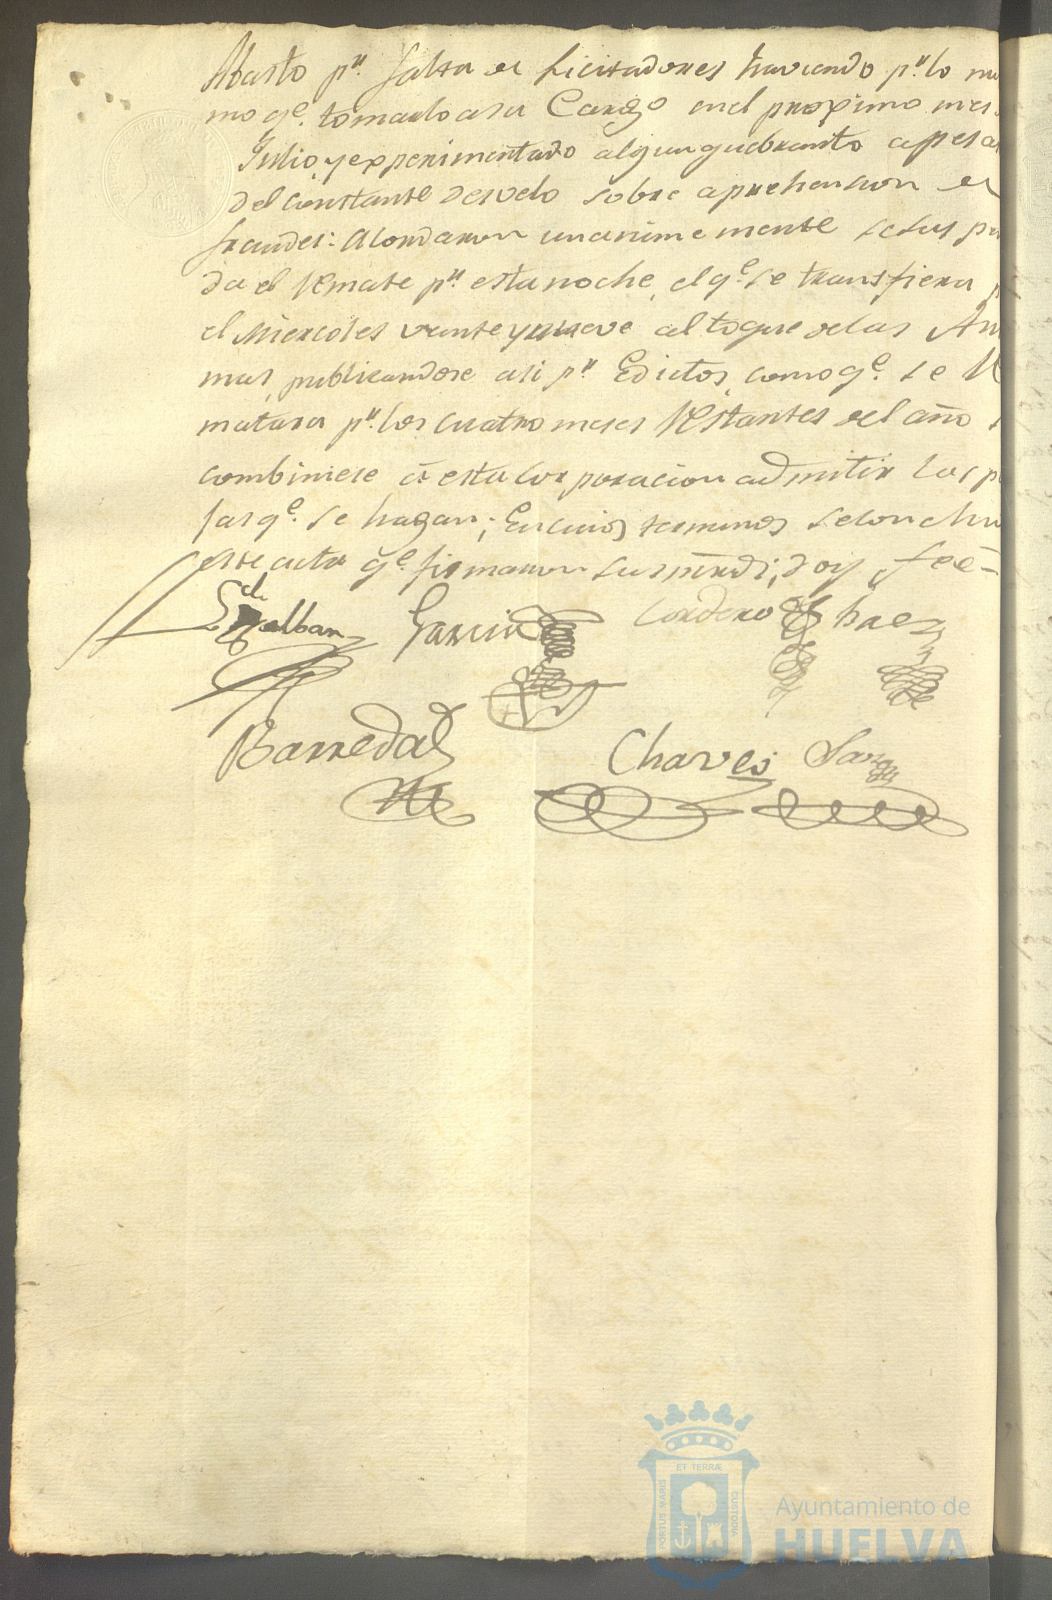 Abasto pr. falta de Licitadores haviendo pr. lo
mo qe. tomarlo a su Cargo en el proximo mes
Julio, y experimentado algun quebranto apesar
del constante desvelo sobre aprehencion de
fraudes: Acordaron unanimemente se sus
da el Remate pr. esta noche, el qe. se transfiera
el Miercoles veinte y nueve al toque de las An
mas, publicandose asi pr. Edictos, como qe. se Re
matara pr. los cuatro meses Restantes del año
combiniese á esta Corporacion admitir las
jas qe. se hagan; En cuios terminos se concluio
este acto qe. firmaron sus mrds; doy feé=
Garcia Cordero Baez
Barreda Chaves
ET TERRÆ
PORTUS MARIS
CUSTODIA
Ayuntamiento de
HUELVA